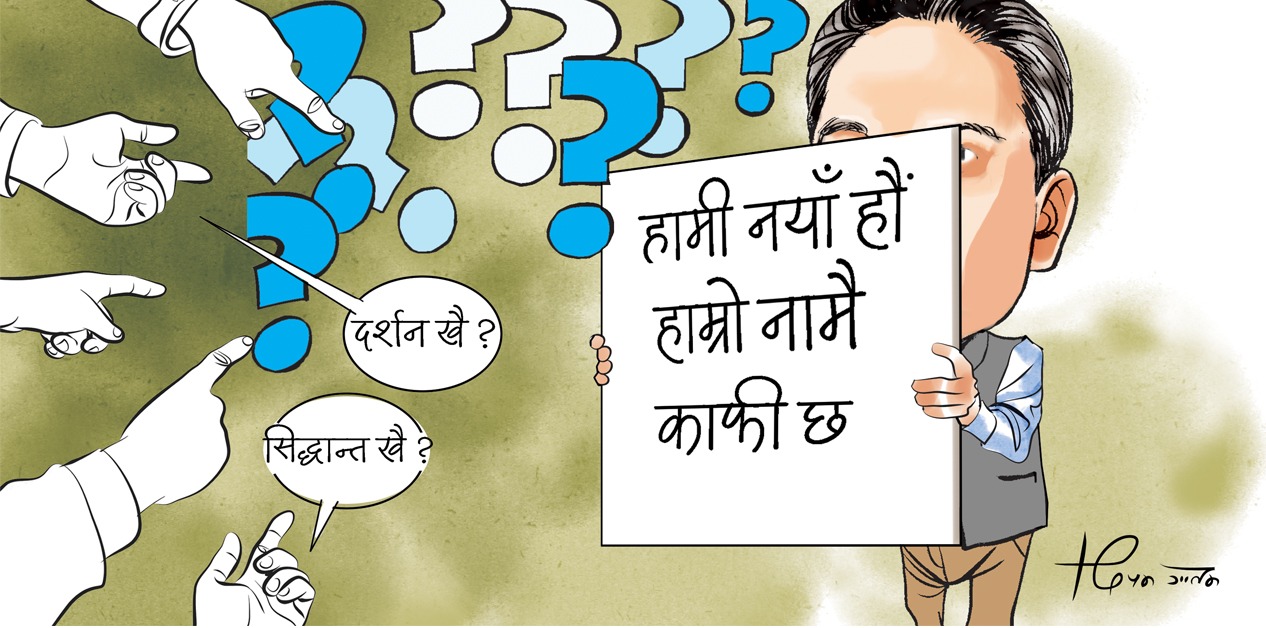 दर्शन खै ?
सिद्धान्त खै ?
हामी नयाँ हौं
हाम्रो नामै
काफी छ